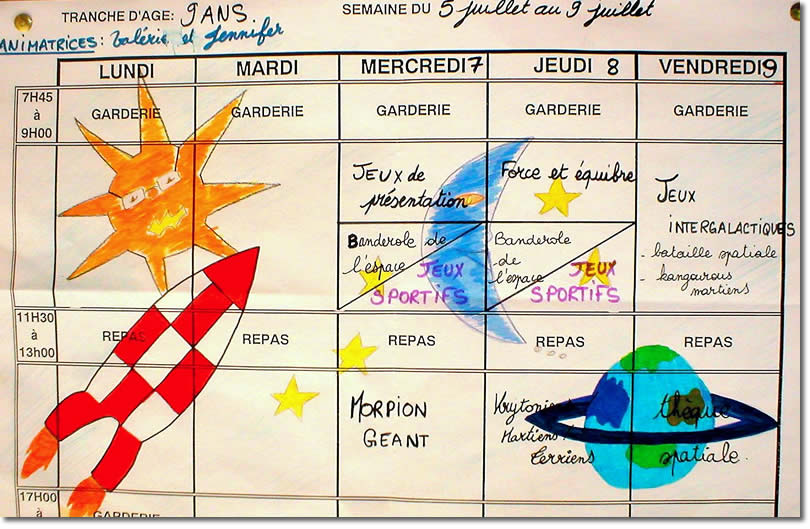 TRANCHE D'AGE: 9 ANS.
SEMAINE DU 5 juillet au 9 juillet
ANIMATRICES: Valérie et Jennifer
LUNDI MARDI MERCREDI 7 JEUDI 8 VENDREDI 9
7H45
à
9H00
GARDERIE GARDERIE GARDERIE GARDERIE GARDERIE
JEUX de
présentation
Force et équibre
JEUX
INTERGALACTIQUES
- bataille spatiale
- kangourous
martiens
Banderole de
l'espace
JEUX
SPORTIFS
Banderole
de
l'espace
JEUX
SPORTIFS
11H30
à
13h00
REPAS REPAS REPAS REPAS REPAS
MORPION
GEANT
Martiens
Terriens
thèque
spatiale.
17H00
à
GARDERIE